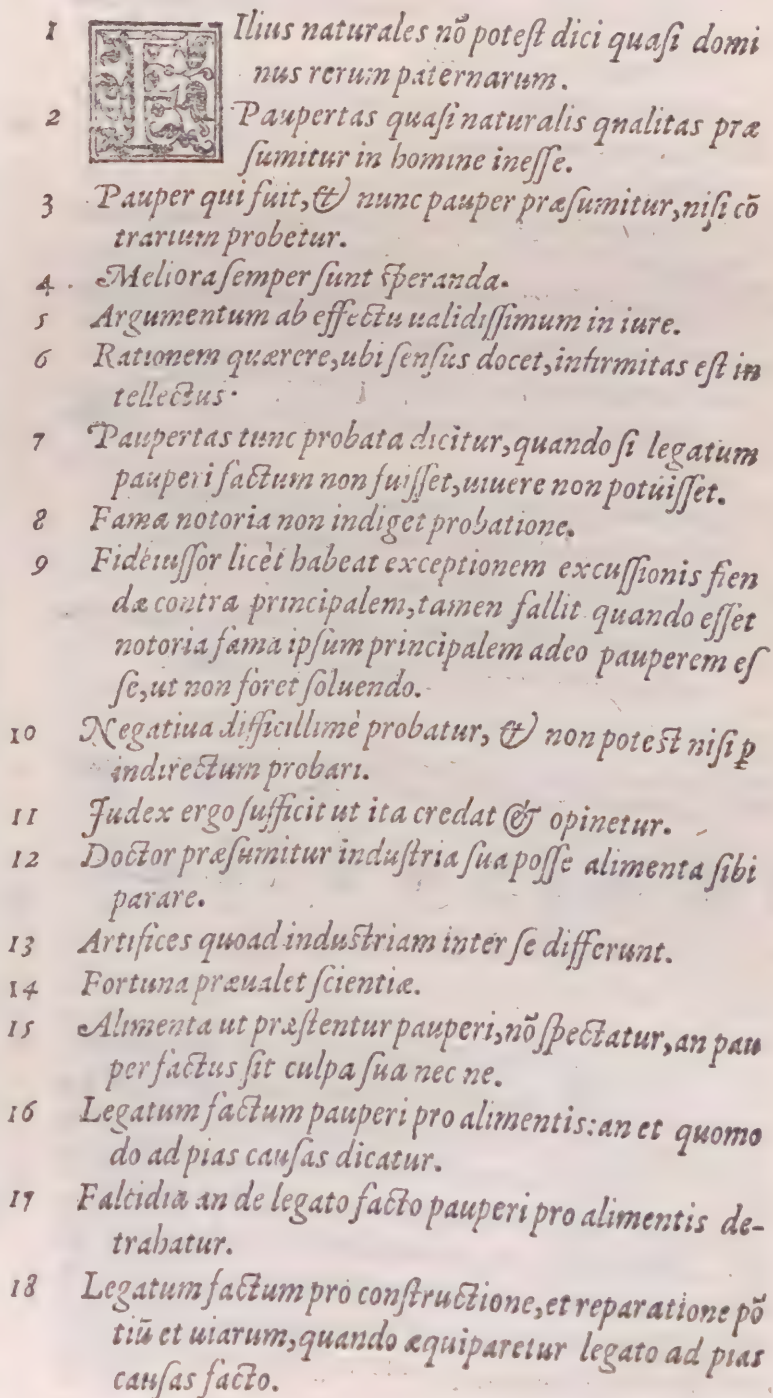 1 FIlius naturales nõ potest dici quasi domi
nus rerum paternarum.
2 Paupertas quasi naturalis qnalitas præ
sumitur in homine inesse.
3 Pauper qui fuit, & nunc pauper præsumitur, nisi cõ
trarium probetur.
4. Meliora semper sunt speranda.
5 Argumentum ab effectu ualidissimum in iure.
6 Rationem quærere, ubi sensus docet, infirmitas est in
tellectus.
7 Paupertas tunc probata dicitur, quando si legatum
pauperi factum non fuisset, uiuere non potuisset.
8 Fama notoria non indiget probatione.
9 Fideiussor licèt habeat exceptionem excussionis fien
dæ contra principalem, tamen fallit quando esset
notoria fama ipsum principalem adeo pauperem es
se, ut non foret soluendo.
10 Negatiua difficillimè probatur, & non potest nisi ꝑ
indirectum probari.
11 Judex ergo sufficit ut ita credat & opinetur.
12 Doctor præsumitur industria sua posse alimenta sibi
parare.
13 Artifices quoad industriam inter se differunt.
14 Fortuna præualet scientiæ.
15 Alimenta ut præstentur pauperi, nõ spectatur, an pau
per factus sit culpa sua nec ne.
16 Legatum factum pauperi pro alimentis: an et quomo
do ad pias causas dicatur.
17 Falcidia an de legato facto pauperi pro alimentis de-
trahatur.
18 Legatum factum pro constructione, et reparatione põ
tiũ et uiarum, quando æquiparetur legato ad pias
causas facto.